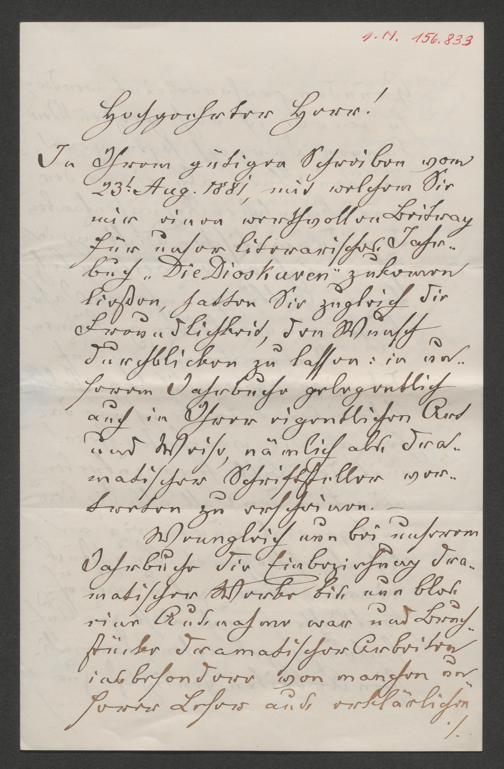 J. N. 156.833
Hochgeehrter Herr!
In Ihrem gütigen Schreiben vom
23t. Aug. 1881, mit welchem Sie
mir einen werthvollen Beitrag
für unser literarisches Jahr-
buch „Die Dioskuren" zukommen
ließen, hatten Sie zugleich die
Freundlichkeit, den Wunsch
durchblicken zu lassen: in un-
serem Jahrbuche gelegentlich
auch in Ihrer eigentlichen Art
und Weise, nämlich als dra-
matischer Schriftsteller ver-
treten zu erscheinen. –
Wenngleich nun bei unserem
Jahrbuche die Einbeziehung dra-
matischer Werke bis nun blos
eine Ausnahme war und Bruch-
stücke dramatischer Arbeiten
insbesondere von manchen un
serer Leser aus erklärlichen
./.